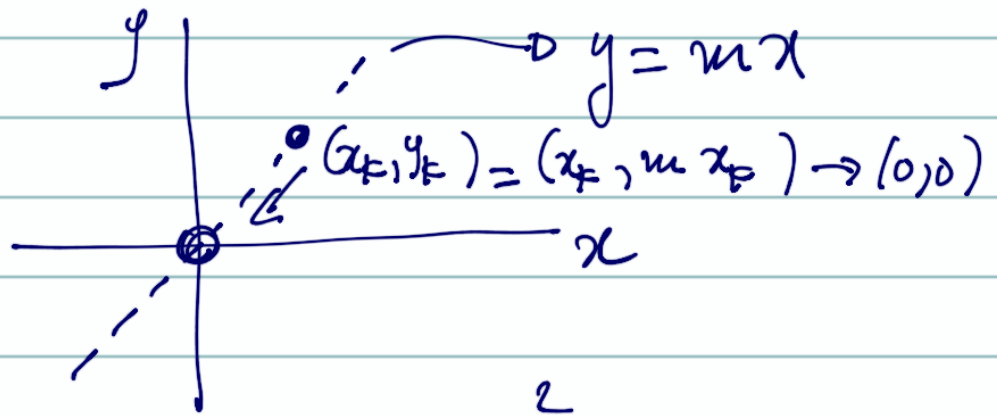 y
y = mx
(x_k, y_k) = (x_k, m x_k) → (0,0)
x
2